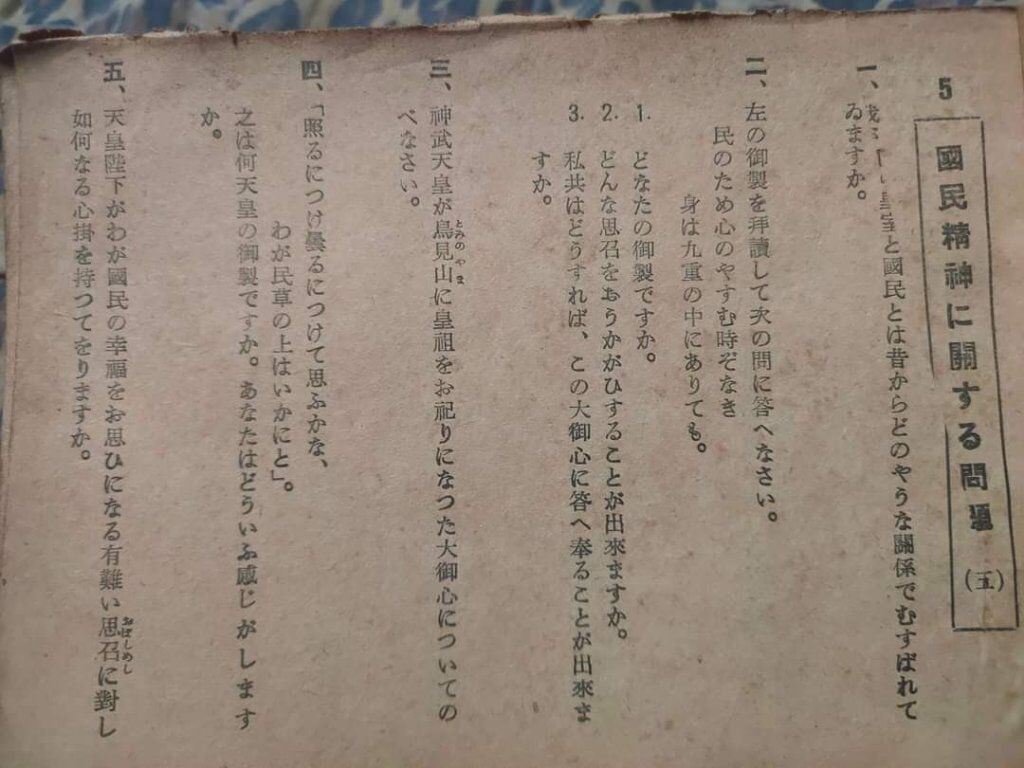 5
國民精神に關する問題 (五)
一、我が 皇室と國民とは昔からどのやうな關係でむすばれて
ゐますか。
二、左の御製を拜讀して次の問に答へなさい。
民のため心のやすむ時ぞなき
身は九重の中にありても。
1. どなたの御製ですか。
2. どんな思召をおうかがひすることが出來ますか。
3. 私共はどうすれば、この大御心に答へ奉ることが出來ま
すか。
三、神武天皇が鳥見山に皇祖をお祀りになつた大御心についての
とみのやま
べなさい。
四、「照るにつけ曇るにつけて思ふかな、
わが民草の上はいかにと」。
之は何天皇の御製ですか。あなたはどういふ感じがします
か。
五、天皇陛下がわが國民の幸福をお思ひになる有難い思召に對し
おぼしめし
如何なる心掛を持つてをりますか。